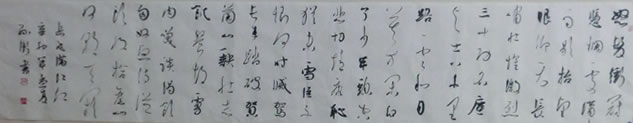 怒髮衝冠
憑欄處瀟
雨歇抬望
眼仰天長
嘯壯懷激烈
三十功名塵
与土八千里
路雲和月
莫等閑白
了少年頭空
悲切靖康恥
猶未雪臣子
恨何時滅駕
長車踏破賀
蘭山缺壯志
飢餐胡虜
肉笑談渴飲
匈奴血待從
頭收拾舊山
河朝天闕
岳飛滿江紅
書